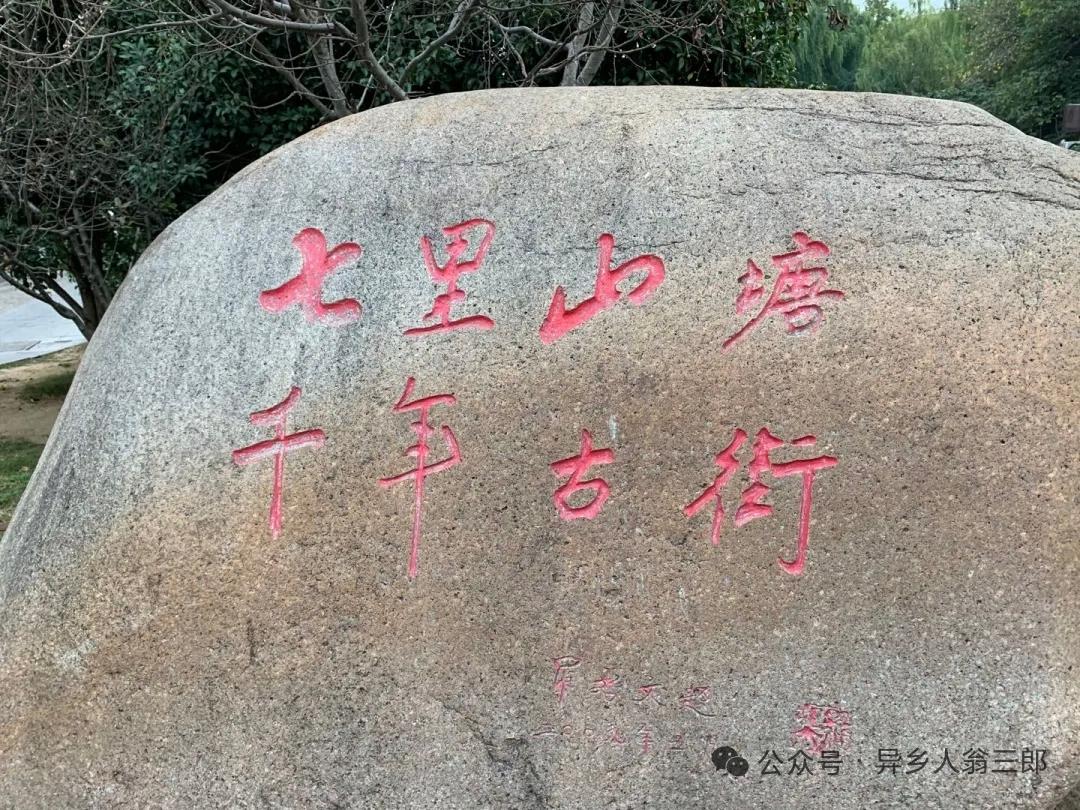 七里山塘
千年古街
罗哲文题
公众号·异乡人翁三郎